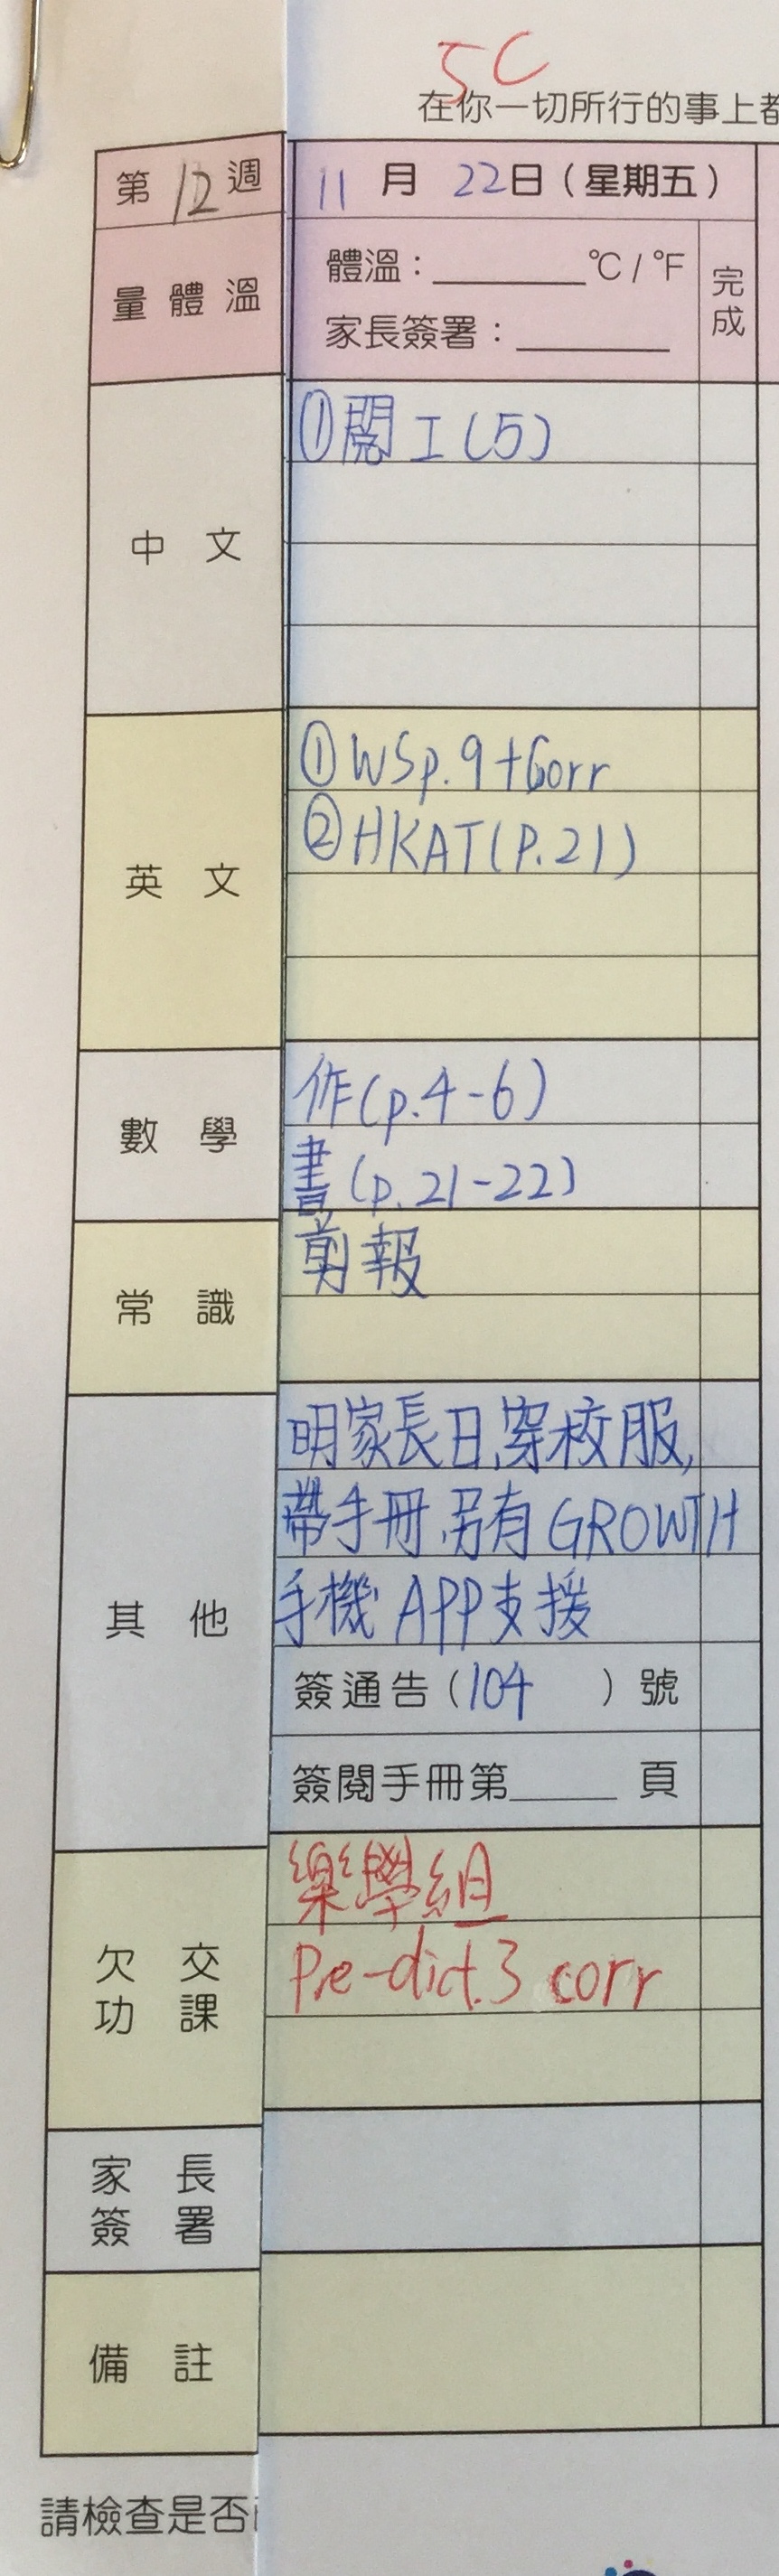 5C
在你一切所行的事上都
第 12 週
11 月 22 日 ( 星期五 )
量 體 溫
體溫：______ °C / °F
家長簽署：______
完成
中 文
①閱工(5)
英 文
①WSp.9+Corr
②HKAT(P.21)
數 學
作(p.4-6)
書(p.21-22)
常 識
剪報
其 他
明家長日,穿校服,
帶手冊,另有GROWTH
手機APP支援
簽通告 (104 ) 號
簽閱手冊第______ 頁
欠 交
功 課
樂學組
Pre-dict.3 corr
家 長
簽 署
備 註
請檢查是否